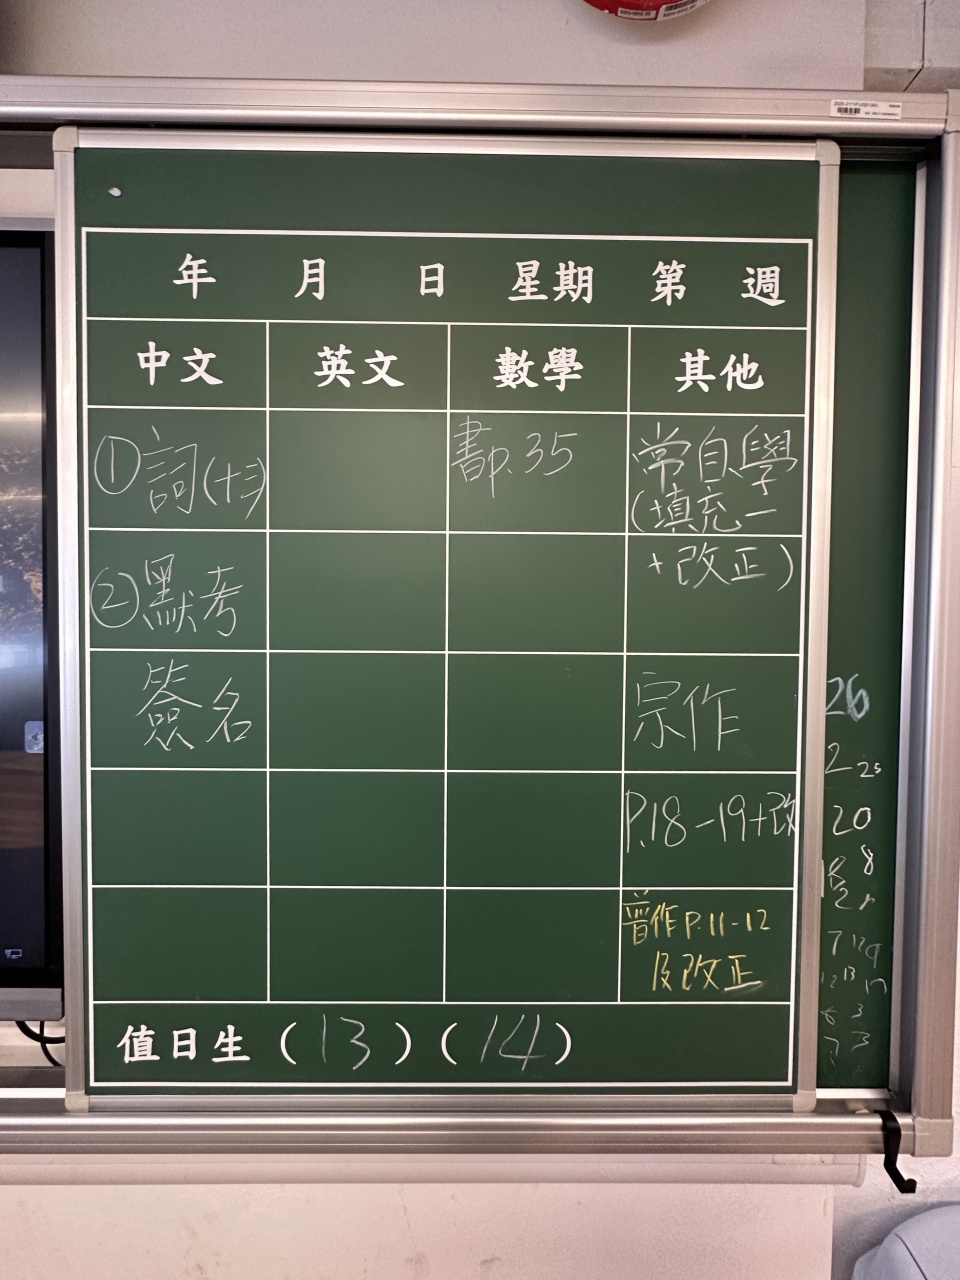 年 月 日 星期 第 週
中文 英文 數學 其他
①詞(十三) 書p.35 常自學
(填充一
+改正)
②默考
簽名 宗作
P.18-19+改
普作P.11-12
及改正
值日生(13)(14)
26
2 25
20
8
7 12 9
12 13 17
6 3
7 3